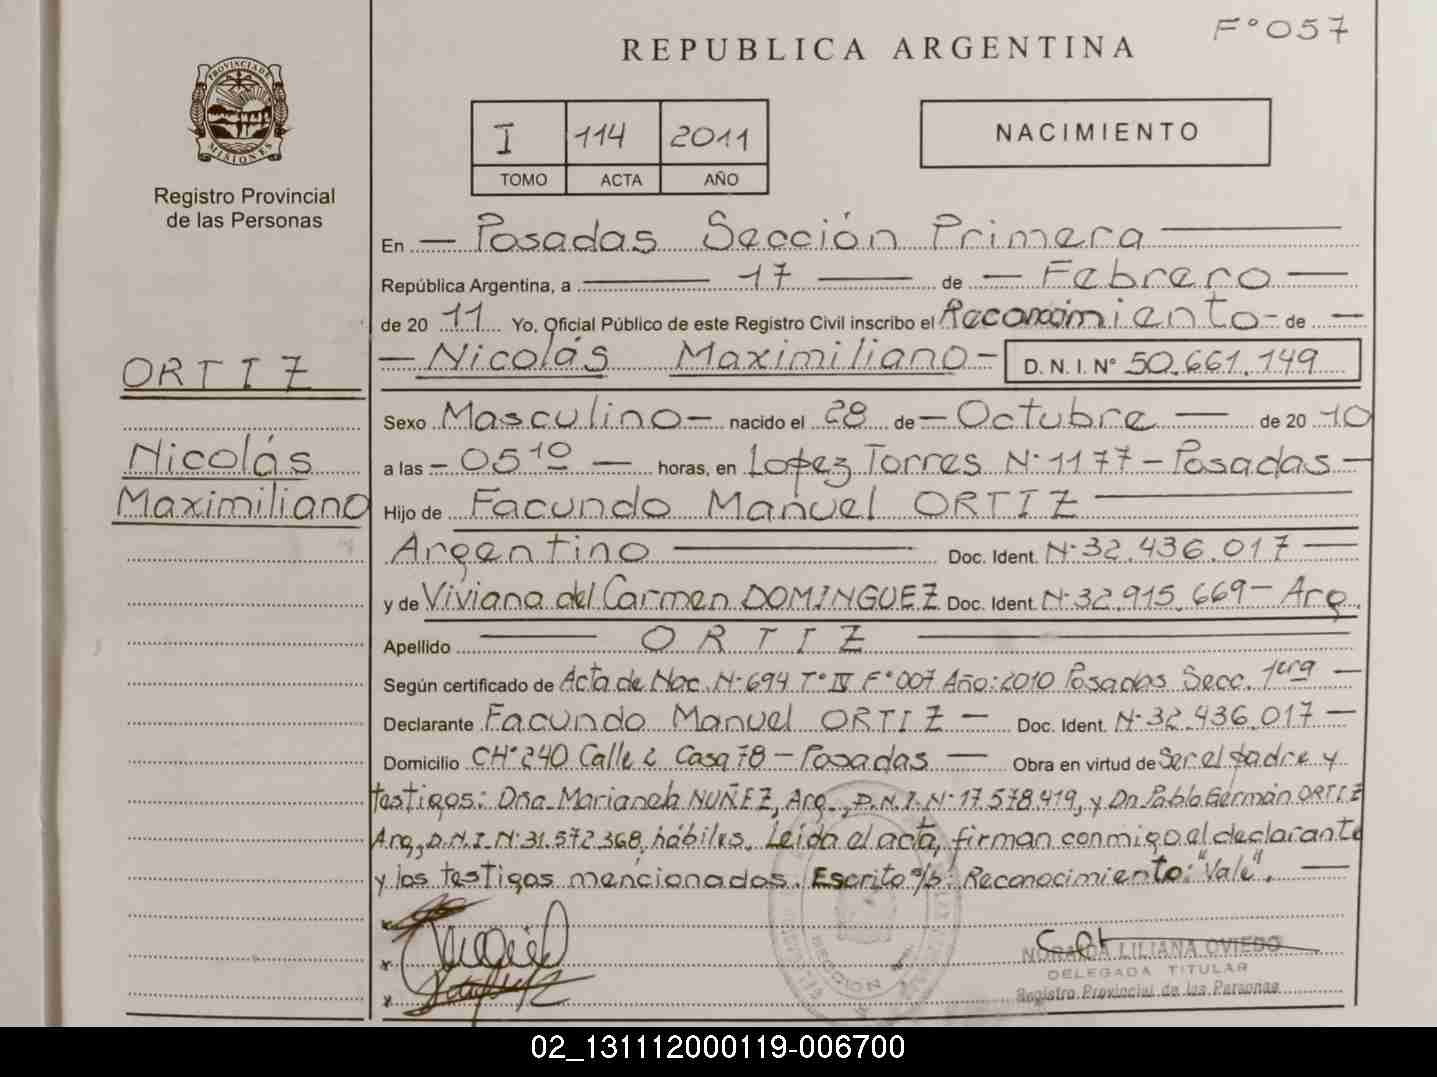 F° 057
REPUBLICA ARGENTINA
PROVINCIA DE
MISIONES
Registro Provincial
de las Personas
I 114 2011
TOMO ACTA AÑO
NACIMIENTO
En Posadas Sección Primera
República Argentina, a 17 de Febrero
de 20 11 Yo, Oficial Público de este Registro Civil inscribo el Reconocimiento de
Nicolás Maximiliano D. N. I. N° 50.661.149
ORTIZ
Nicolás
Maximiliano
Sexo Masculino nacido el 28 de Octubre de 20 10
a las 05 10 horas, en Lopez Torres N° 1177 - Posadas
Hijo de Facundo Manuel ORTIZ
Argentino Doc. Ident. N° 32.436.017
y de Viviana del Carmen DOMINGUEZ Doc. Ident. N° 32.915.669 - Arg.
Apellido ORTIZ
Según certificado de Acta de Nac. N° 694 T° IV F° 007 Año: 2010 Posadas Secc. 1era
Declarante Facundo Manuel ORTIZ Doc. Ident. N° 32.436.017
Domicilio CH° 240 Calle 2 Casa 78 - Posadas Obra en virtud de Ser el padre y
testigos: Dña. Marianela NUÑEZ, Arg., D.N.I. N° 17.578.419, y Dn Pablo Germán ORTIZ
Arg., D.N.I. N° 31.572.368, hábiles. Leída el acta, firman conmigo el declarante
y los testigos mencionados. Escrito s/b: Reconocimiento: "Vale".
NORAIDA LILIANA OVIEDO
DELEGADA TITULAR
Registro Provincial de las Personas
SECCION
02_131112000119-006700